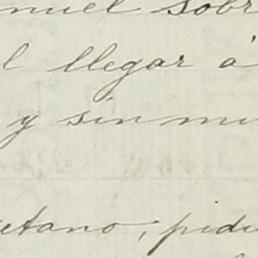 nuel sobr
l llegar á
y sin mu
etano, pidi